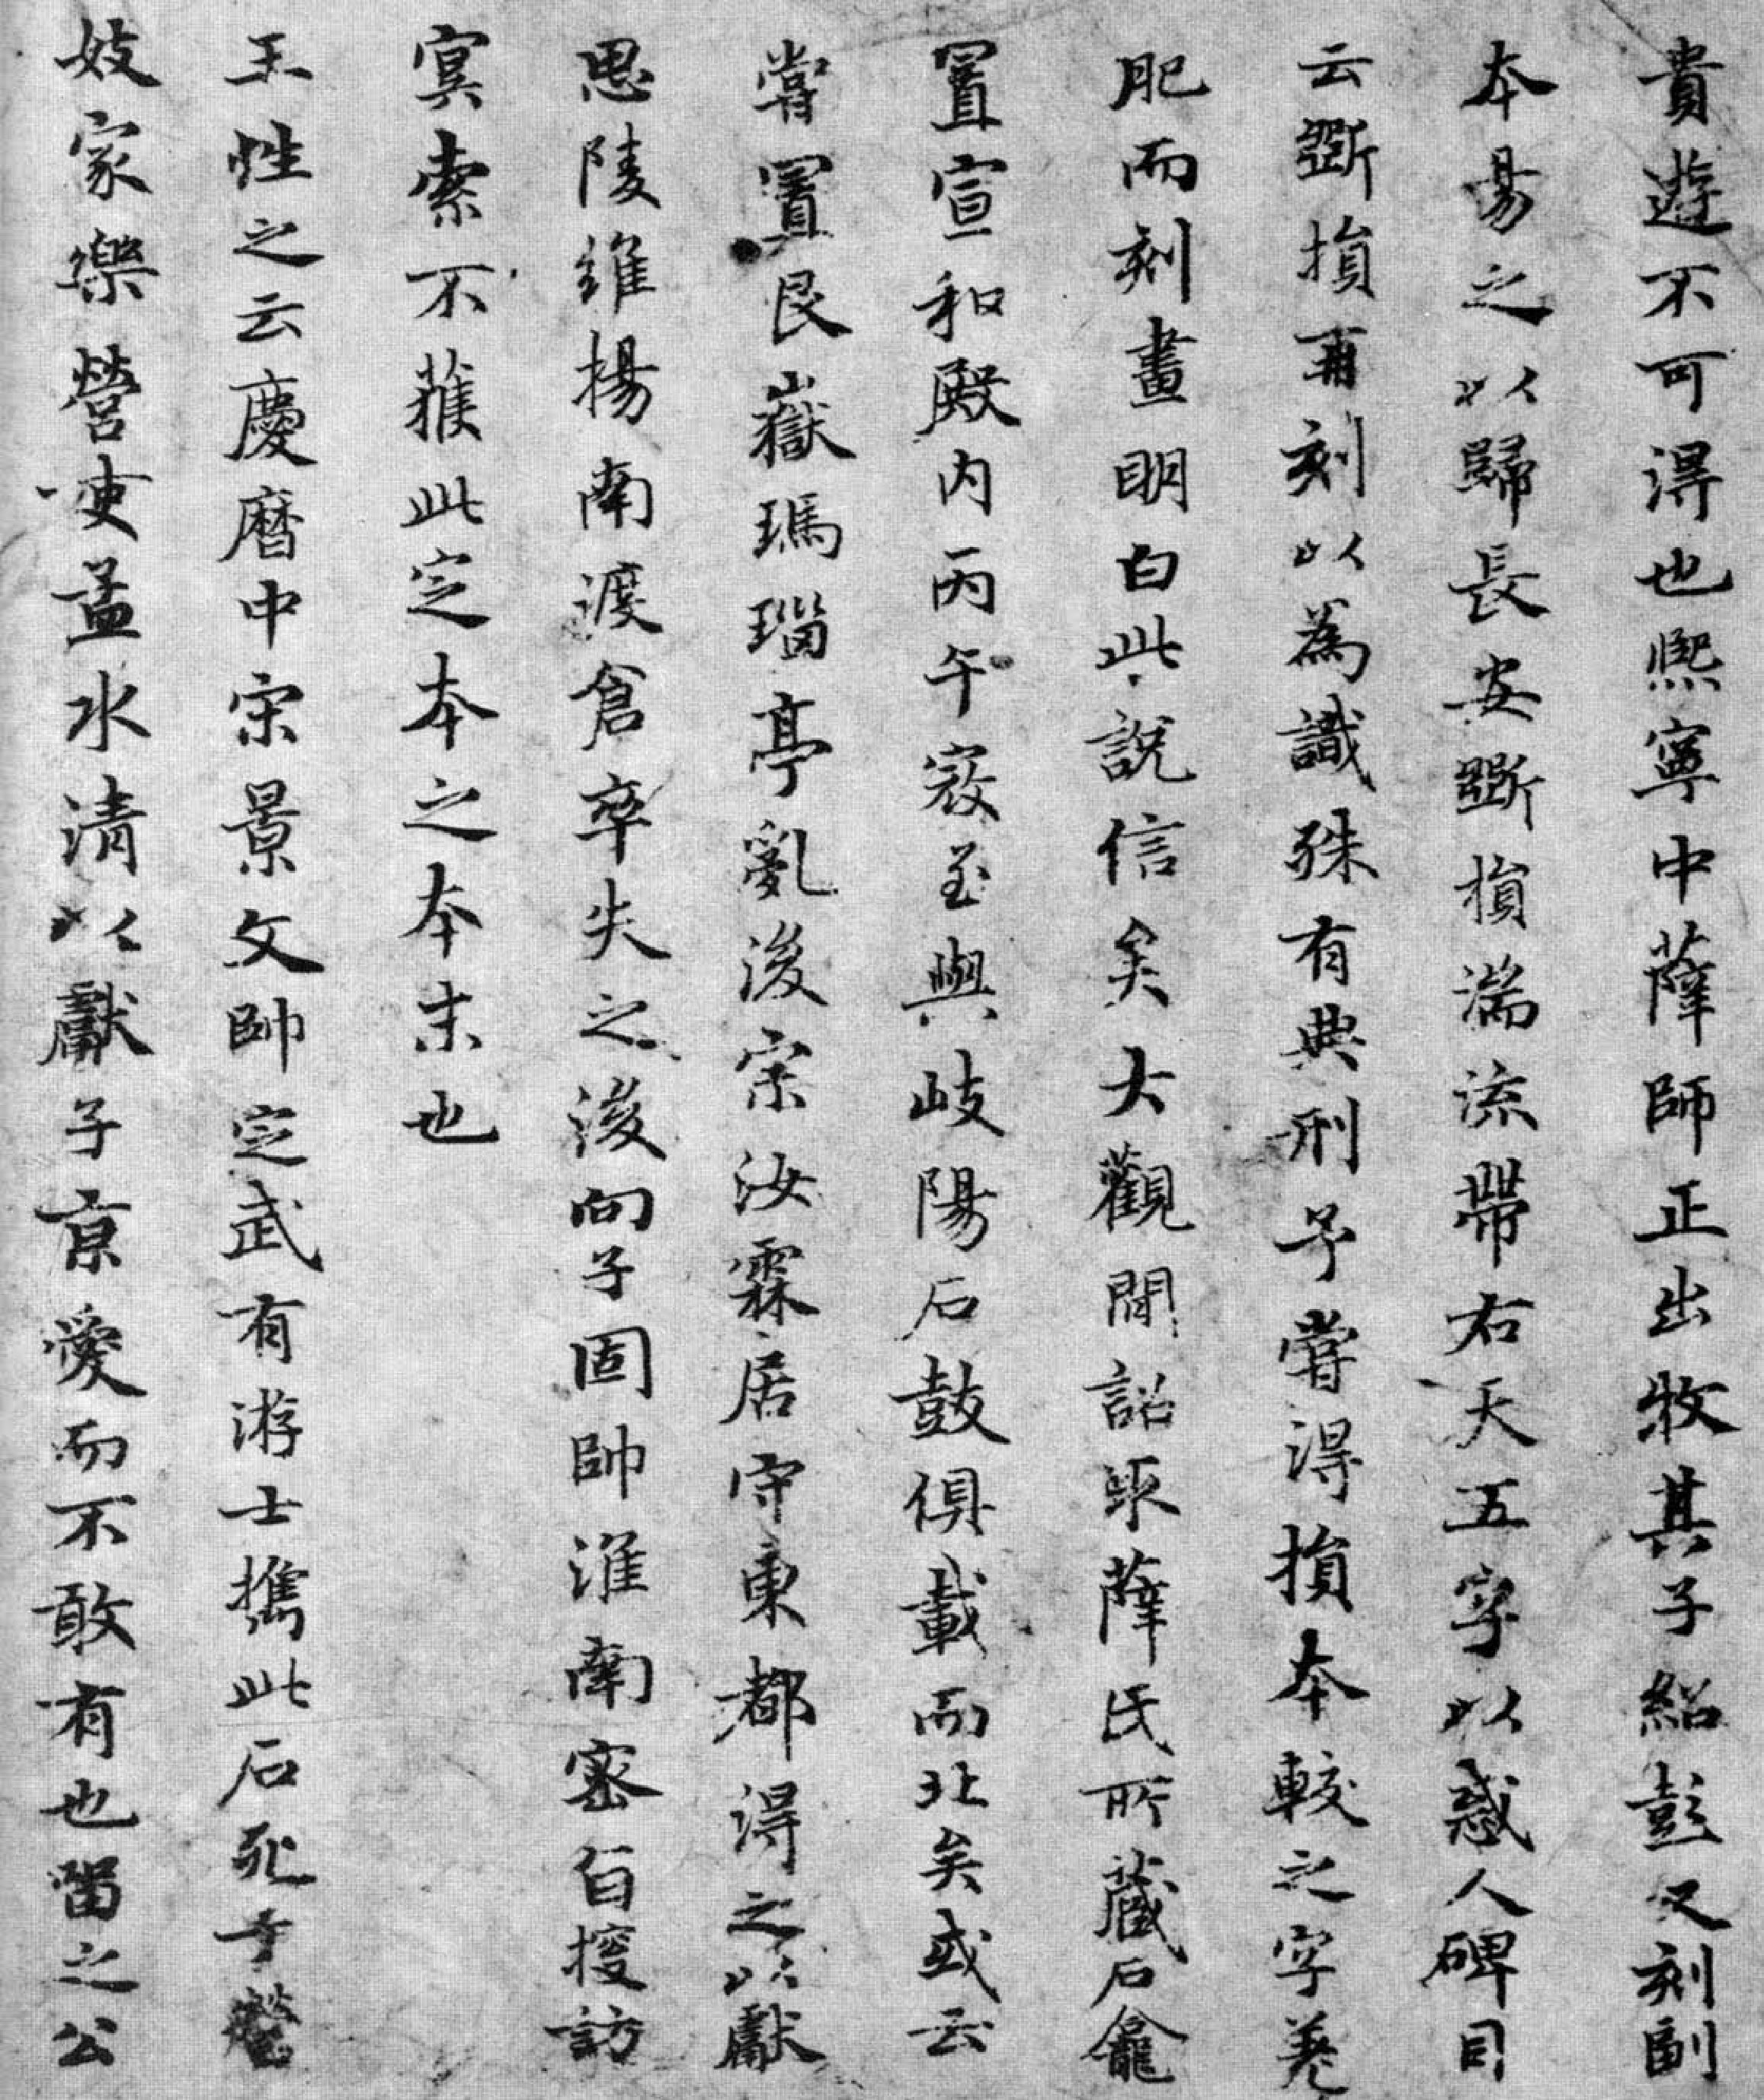 貴遊不可得也熙寧中薛師正出牧其子紹彭又刻副
本易之以歸長安斵損湍流帶右天五字以惑人碑目
云斵損再刻以為識殊有典刑予嘗得損本較之字差
肥而刻畫明白此說信矣大觀間詔取薛氏所藏石龕
置宣和殿内丙午寇至與岐陽石鼓俱載而北矣或云
嘗置艮嶽瑪瑙亭亂後宗汝霖居守東都得之以獻
思陵維揚南渡倉卒失之後向子固帥淮南密自搜訪
㝠索不獲此定本之本末也
王性之云慶曆中宋景文帥定武有游士攜此石死于營
妓家樂營吏孟水清以獻子京愛而不敢有也留之公